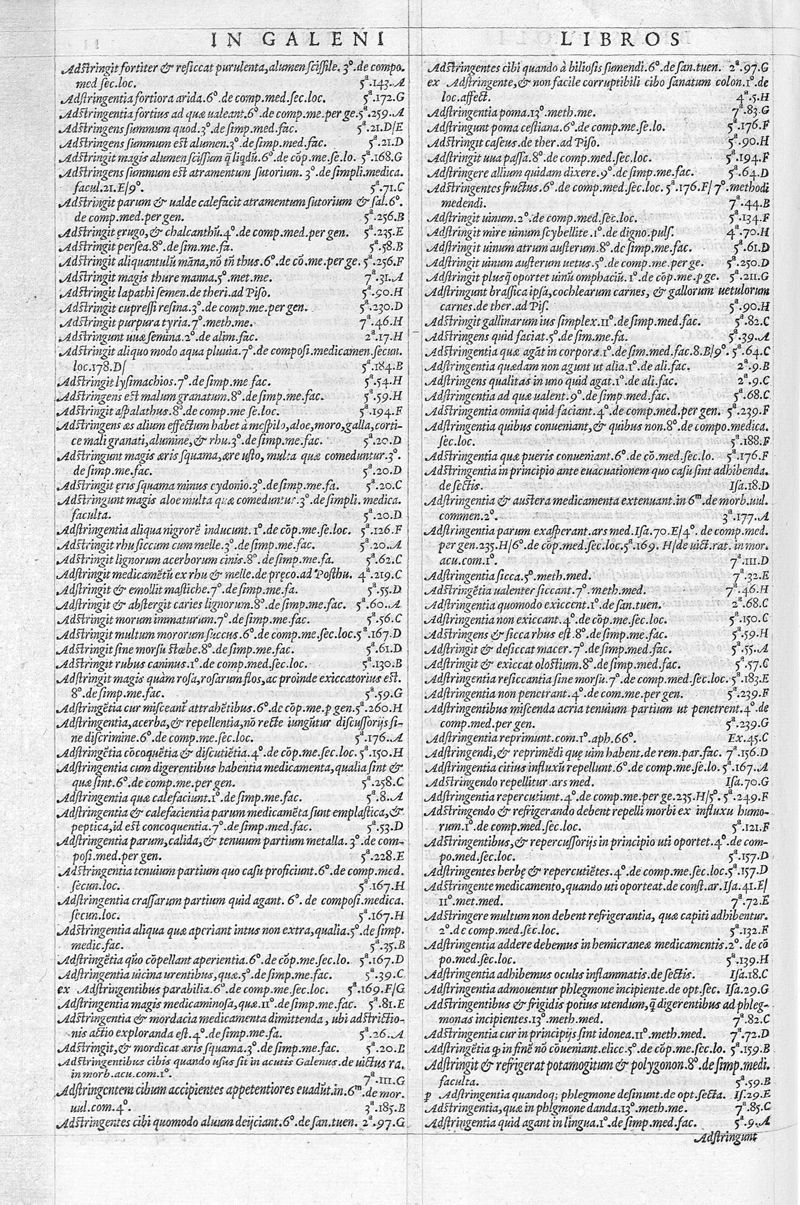 IN GALENI
Adstringit fortiter & resiccat purulenta, alumen scissile. 3º. de compo.
med sec. loc. 5ª. 143. A
Adstringentia fortiora arida. 6º. de comp. med. sec. loc. 5ª. 172. G
Adstringentia fortius ad quæ ualeant, 6º. de comp. me. per ge. 5ª. 259. A
Adstringens summum quod. 3º. de simp. med. fac. 5ª. 21. D/E
Adstringens summum est alumen. 3º. de simp. med. fac. 5ª. 21. D
Adstringit magis alumen scissum q̃ liqdũ. 6º. de cõp. me. se. lo. 5ª. 168. G
Adstringens summum est atramentum sutorium. 3º. de simpli. medica.
facul. 21. E/9º. 5ª. 71. C
Adstringit parum & ualde calefacit atramentum sutorium & sal. 6º.
de comp. med. per gen. 5ª. 256. B
Adstringit ęrugo, & chalcanthũ. 4º. de comp. med. per gen. 5ª. 235. E
Adstringit persea. 8º. de sim. me. fa. 5ª. 58. B
Adstringit aliquantulũ mãna, nõ tñ thus. 6º. de cõ. me. per ge. 5ª. 256. F
Adstringit magis thure manna. 5º. met. me. 7ª. 31. A
Adstringit lapathi semen. de theri. ad Piso. 5ª. 90. H
Adstringit cupressi resina. 3º. de comp. me. per gen. 5ª. 230. D
Adstringit purpura tyria. 7º. meth. me. 7ª. 46. H
Adstringunt uuæ semina. 2º. de alim. fac. 2ª. 17. H
Adstringit aliquo modo aqua pluuia. 7º. de composi. medicamen. secun.
loc. 178. D/ 5ª. 184. B
Adstringit lysimachios. 7º. de simp. me fac. 5ª. 54. H
Adstringens est malum granatum. 8º. de simp. me. fac. 5ª. 59. H
Adstringit aspalathus. 8º. de comp. me se. loc. 5ª. 194. F
Adstringens æs alium effectum habet à mespilo, aloe, moro, galla, corti-
ce mali granati, alumine, & rhu. 3º. de simp. me. fac. 5ª. 20. D
Adstringunt magis æris squama, ære usto, multa quæ comeduntur. 3º.
de simp. me. fac. 5ª. 20. D
Adstringit ęris squama minus cydonio. 3º. de simp. me. fa. 5ª. 20. C
Adstringunt magis aloe multa quæ comeduntur. 3º. de simpli. medica.
faculta. 5ª. 20. D
Adstringentia aliqua nigrorẽ inducunt. 1º. de cõp. me. se. loc. 5ª. 126. F
Adstringit rhu siccum cum melle. 3º. de simp. me. fac. 5ª. 20. A
Adstringit lignorum acerborum cinis. 8º. de simp. me. fa. 5ª. 62. C
Adstringit medicamẽtũ ex rhu & melle. de pręco. ad Posthu. 4ª. 219. C
Adstringit & emollit mastiche. 7º. de simp. me. fa. 5ª. 55. D
Adstringit & abstergit caries lignorum. 8º. de simp. me. fac. 5ª. 60. A
Adstringit morum immaturum. 7º. de simp. me. fac. 5ª. 56. C
Adstringit multum mororum succus. 6º. de comp. me. sec. loc. 5ª. 167. D
Adstringit sine morsu stœbe. 8º. de simp. me. fac. 5ª. 61. D
Adstringit rubus caninus. 1º. de comp. med. sec. loc. 5ª. 130. B
Adstringit magis quàm rosa, rosarum flos, ac proinde exiccatorius est.
8º. de simp. me. fac. 5ª. 59. G
Adstringẽtia cur misceant attrahẽtibus. 6º. de cõp. me. p gen. 5ª. 260. H
Adstringentia, acerba, & repellentia, nõ recte iungũtur discussorijs si-
ne discrimine. 6º. de comp. me. sec. loc. 5ª. 176. A
Adstringẽtia cõcoquẽtia & discutiẽtia. 4º. de cõp. me. sec. loc. 5ª. 150. H
Adstringentia cum digerentibus habentia medicamenta, qualia sint &
quæ sint. 6º. de comp. me. per gen. 5ª. 258. C
Adstringentia quæ calefaciunt. 1º. de simp. me. fac. 5ª. 8. A
Adstringentia & calefacientia parum medicamẽta sunt emplastica, &
peptica, id est concoquentia. 7º. de simp. med. fac. 5ª. 53. D
Adstringentia parum, calida, & tenuum partium metalla. 3º. de com-
posi. med. per gen. 5ª. 228. E
Adstringentia tenuium partium quo casu proficiunt. 6º. de comp. med.
secun. loc. 5ª. 167. H
Adstringentia crassarum partium quid agant. 6º. de composi. medica.
secun. loc. 5ª. 167. H
Adstringentia aliqua quæ aperiant intus non extra, qualia. 5º. de simp.
medic. fac. 5ª. 35. B
Adstringẽtia qũo cõpellant aperientia. 6º. de cõp. me. sec. lo. 5ª. 167. D
Adstringentia uicina urentibus, quæ. 5º. de simp. me. fac. 5ª. 39. C
ex Adstringentibus parabilia. 6º. de comp. me. sec. loc. 5ª. 169. F/G
Adstringentia magis medicaminosa, quæ. 11º. de simp. me. fac. 5ª. 81. E
Adstringentia & mordacia medicamenta dimittenda, ubi adstrictio-
nis actio exploranda est. 4º. de simp. me. fa. 5ª. 26. A
Adstringit, & mordicat æris squama. 3º. de simp. me. fac. 5ª. 20. B
Adstringentibus cibis quando usus sit in acutis Galenus. de uictus ra.
in morb. acu. com. 1º. 7ª. 111. G
Adstringentem cibum accipientes appetentiores euadũt. in. 6ᵐ. de mor.
uul. com. 4º. 3ª. 185. B
Adstringentes cibi quomodo aluum deijciant. 6º. de san. tuen. 2ª. 97. G
LIBROS
Adstringentes cibi quando à biliosis sumendi. 6º. de san. tuen. 2ª. 97. G
ex Adstringente, & non facile corruptibili cibo sanatum colon. 1º. de
loc. affect. 4ª. 5. H
Adstringentia poma. 13º. meth. me. 7ª. 83. G
Adstringunt poma cestiana. 6º. de comp. me. se. lo. 5ª. 176. F
Adstringit caseus. de ther. ad Piso. 5ª. 90. H
Adstringit uua passa. 8º. de comp. med. sec. loc. 5ª. 194. F
Adstringere allium quidam dixere. 9º. de simp. me. fac. 5ª. 64. D
Adstringentes fructus. 6º. de comp. med. sec. loc. 5ª. 176. F/ 7º. methodi
medendi. 7ª. 44. B
Adstringit uinum. 2º. de comp. med. sec. loc. 5ª. 134. F
Adstringit mire uinum scybellite. 1º. de digno. puls. 4ª. 70. H
Adstringit uinum atrum austerum. 8º. de simp. me. fac. 5ª. 61. D
Adstringit uinum austerum uetus. 5º. de comp. me. per ge. 5ª. 250. D
Adstringit plusq̃ oportet uinũ omphaciũ. 1º. de cõp. me. p ge. 5ª. 211. G
Adstringunt brassica ipsa, cochlearum carnes, & gallorum uetulorum
carnes. de ther. ad Pis. 5ª. 90. H
Adstringit gallinarum ius simplex. 11º. de simp. med. fac. 5ª. 82. C
Adstringens quid faciat. 5º. de sim. me. fa. 5ª. 39. A
Adstringentia quæ agãt in corpora. 1º. de sim. med. fac. 8. B/9º. 5ª. 64. C
Adstringentia quædam non agunt ut alia. 1º. de ali. fac. 2ª. 9. B
Adstringens qualitas in uno quid agat. 1º. de ali. fac. 2ª. 9. C
Adstringentia ad quæ ualent. 9º. de simp. me. fac. 5ª. 68. C
Adstringentia omnia quid faciant. 4º. de comp. med. per gen. 5ª. 239. F
Adstringentia quibus conueniant, & quibus non. 8º. de compo. medica.
sec. loc. 5ª. 188. F
Adstringentia quæ pueris conueniant. 6º. de cõ. med. sec. lo. 5ª. 176. F
Adstringentia in principio ante euacuationem quo casu sint adhibenda.
de sectis. Isa. 18. D
Adstringentia & austera medicamenta extenuant. in 6ᵐ. de morb. uul.
commen. 2º. 3ª. 177. A
Adstringentia parum exasperant. ars med. Isa. 70. E/ 4º. de comp. med.
per gen. 235. H/6º. de cõp. med. sec. loc. 5ª. 169. H/de uict. rat. in mor.
acu. com. 1º. 7ª. 111. D
Adstringentia sicca. 5º. meth. med. 7ª. 32. E
Adstringẽtia ualenter siccant. 7º. meth. med. 7ª. 46. H
Adstringentia quomodo exiccent. 1º. de san. tuen. 2ª. 68. C
Adstringentia non exiccant. 4º. de cõp. me. sec. loc. 5ª. 150. C
Adstringens & sicca rhus est. 8º. de simp. me. fac. 5ª. 59. H
Adstringit & desiccat macer. 7º. de simp. med. fac. 5ª. 55. A
Adstringit & exiccat olostium. 8º. de simp. med. fac. 5ª. 57. C
Adstringentia resiccantia sine morsu. 7º. de comp. med. sec. loc. 5ª. 183. E
Adstringentia non penetrant. 4º. de com. me. per gen. 5ª. 239. F
Adstringentibus miscenda acria tenuium partium ut penetrent. 4º. de
comp. med. per gen. 5ª. 239. G
Adstringentia reprimunt. com. 1º. aph. 66º. Ex. 45. C
Adstringendi, & reprimẽdi quę uim habent. de rem. par. fac. 7ª. 156. D
Adstringentia citius influxũ repellunt. 6º. de comp. me. se. lo. 5ª. 167. A
Adstringendo repellitur. ars med. Isa. 70. G
Adstringentia repercutiunt. 4º. de comp. me. per ge. 235. H/5º. 5ª. 249. F
Adstringendo & refrigerando debent repelli morbi ex influxu humo-
rum. 1º. de comp. med. sec. loc. 5ª. 121. F
Adstringentibus, & repercussorijs in principio uti oportet. 4º. de com-
po. med. sec. loc. 5ª. 157. D
Adstringentes herbę & repercutiẽtes. 4º. de comp. me. sec. loc. 5ª. 157. D
Adstringente medicamento, quando uti oporteat. de const. ar. Isa. 41. E/
11º. met. med. 7ª. 72. E
Adstringere multum non debent refrigerantia, quæ capiti adhibentur.
2º. de comp. med. sec. loc. 5ª. 132. F
Adstringentia addere debemus in hemicraneæ medicamentis. 2º. de cõ
po. med. sec. loc. 5ª. 139. H
Adstringentia adhibemus oculis inflammatis. de sectis. Isa. 18. C
Adstringentia admouentur phlegmone incipiente. de opt. sec. Isa. 29. G
Adstringentibus & frigidis potius utendum, q̃ digerentibus ad phleg-
monas incipientes. 13º. meth. med. 7ª. 82. C
Adstringentia cur in principijs sint idonea. 11º. meth. med. 7ª. 72. D
Adstringẽtia qp in fine nõ cõueniant. elicc. 5º. de cõp. me. sec. lo. 5ª. 159. B
Adstringit & refrigerat potamogitum & polygonon. 8º. de simp. medi.
faculta. 5ª. 59. B
p Adstringentia quandoq; phlegmone desinunt. de opt. secta. Is. 29. E
Adstringentia, quæ in phlegmone danda. 13º. meth. me. 7ª. 85. C
Adstringentia quid agant in lingua. 1º. de simp. med. fac. 5ª. 9. A
Adstringunt